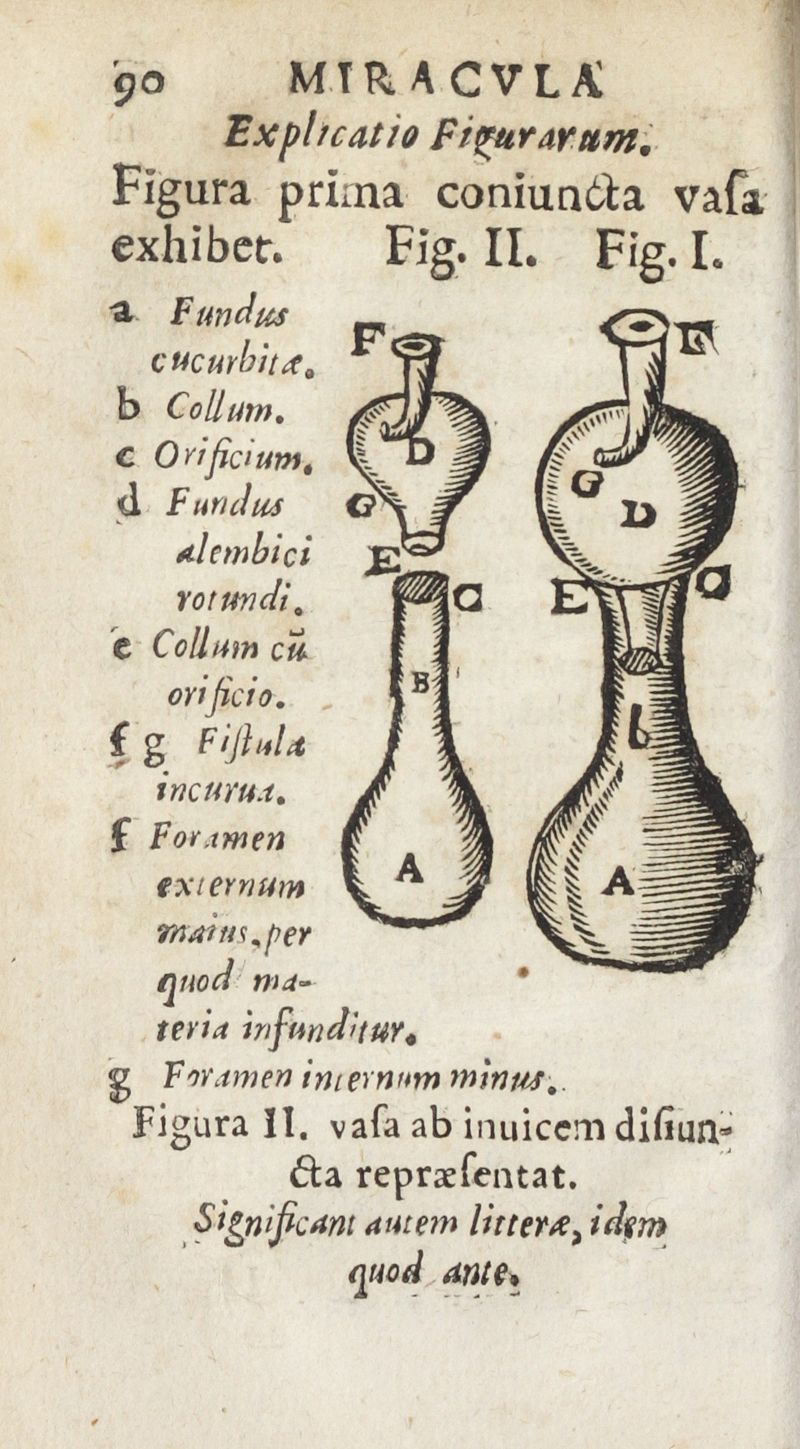 90 MIRACVLA
Explicatio Figurarum.
Figura prima coniuncta vaſa
exhibet. Fig. II. Fig. I.
a Fundus
cucurbitæ.
b Collum.
c Orificium.
d Fundus
alembici
rotundi.
e Collum cū
orificio.
f g Fiſtula
incurua.
f Foramen
externum
maius, per
quod ma-
teria infunditur.
g Foramen internum minus.
F
D
G
E
C
B
A
F
G
D
E
C
b
A
Figura II. vaſa ab inuicem diſiun-
cta repræſentat.
Significant autem litteræ, idem
quod ante.